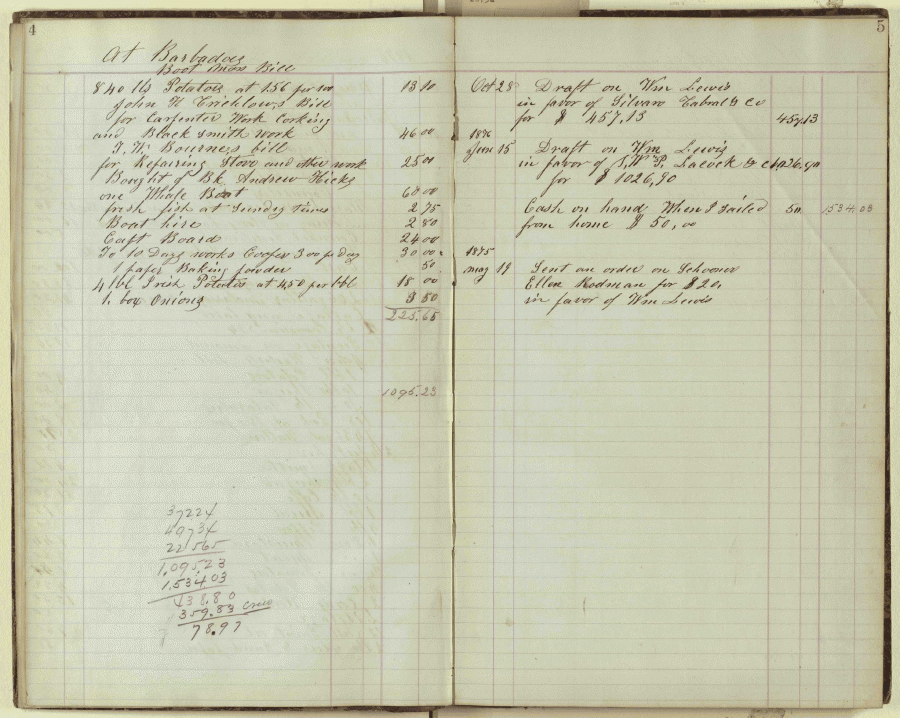 4
At Barbadoes
Boat Mans Bill
840 lbs Potatoes at 1.56 per 100 13 10
John H Crichlows Bill
for Carpenter Work Corking
and Black smith work 46 00
T. W. Bourness bill
for Repairing Stove and other work 25 00
Bought of Bk Andrew Hicks
one Whale Boat 60 00
fresh fish at Sundry times 2 75
Boat hire 2 80
Capt Board 24 00
To 10 Days works Cooper 3 00 p day 30 00
1 paper Baking powder 50
4 lbl Irish Potatoes at 4.50 per bbl 18 00
1 box Onions 3 50
225.65
1095.23
37224
40734
22565
1,095.23
1,534.03
438.80
359.83 Crew
78.97
5
Oct 28 Draft on Wm Lewis
in favor of Silvaro Cabral & Co
for $ 457,13 457.13
1876
Jun 15 Draft on Wm Lewis
in favor of Lacock & Co 1026.90
for $ 1026,90
Cash on hand When I Sailed 50 1534.03
from home $ 50,00
1875
may 19 Sent an order on Schooner
Ellen Rodman for $20,
in favor of Wm Lewis